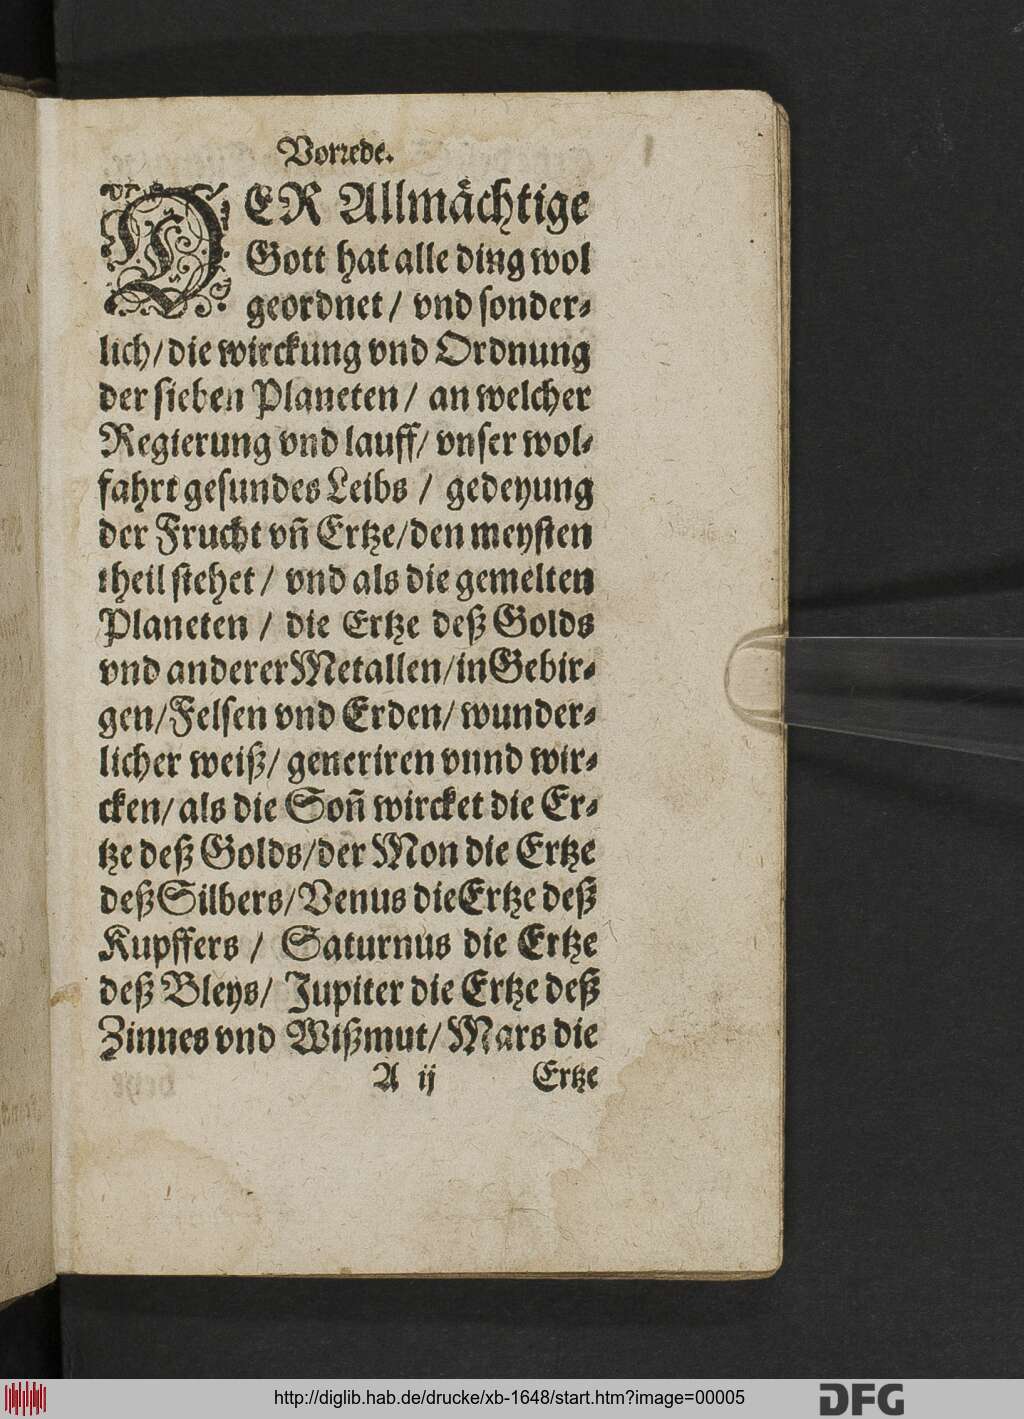 Vorrede.
DER Allmächtige
Gott hat alle ding wol
geordnet / vnd sonder⸗
lich / die wirckung vnd Ordnung
der sieben Planeten / an welcher
Regierung vnd lauff / vnser wol⸗
fahrt gesundes Leibs / gedeyung
der Frucht vñ Ertze / den meysten
theil stehet / vnd als die gemelten
Planeten / die Ertze deß Golds
vnd anderer Metallen / in Gebir⸗
gen / Felsen vnd Erden / wunder⸗
licher weiß / generiren vnnd wir⸗
cken / als die Soñ wircket die Er⸗
tze deß Golds / der Mon die Ertze
deß Silbers / Venus die Ertze deß
Kupffers / Saturnus die Ertze
deß Bleys / Jupiter die Ertze deß
Zinnes vnd Wißmut / Mars die
A ij Ertze
http://diglib.hab.de/drucke/xb-1648/start.htm?image=00005
DFG